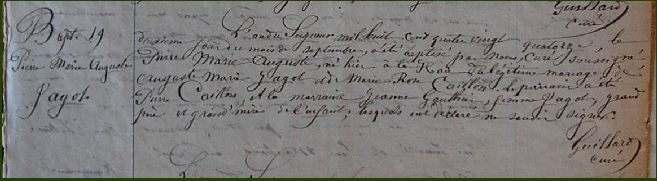 Guillard
curé
Bapt. 14
Pierre Marie Auguste
Jagot
L'an du Seigneur mil huit cent quatre vingt quatorze, le
jour du mois de septembre, a été baptisé par nous, Curé soussigné
Pierre Marie Auguste, né hier à la du légitime mariage de
Auguste Marie Jagot et de Marie Rose Caillon. Le parrain a été
Pierre Caillon et la marraine Jeanne Gauthier, femme Jagot, grand
père et grand'mère de l'enfant, lesquels ont déclaré ne savoir signer.
Guillard
curé